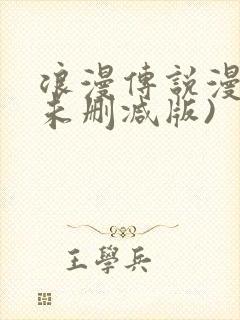 浪漫傳説漫
未刪减版)
王學兵